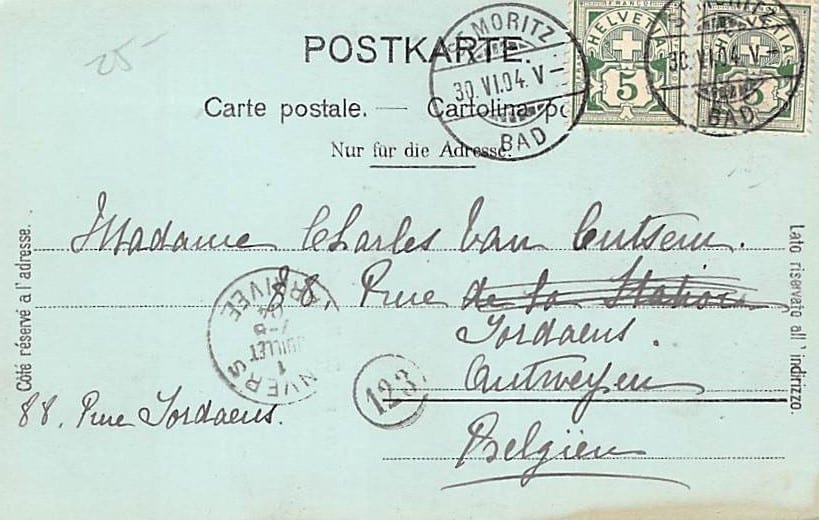 25-
POSTKARTE.
Carte postale. — Cartolina po
Nur für die Adresse.
ST. MORITZ
30.VI.04.V–
BAD
FRANCO
HELVETIA
5
ST. MORITZ
30.VI.04.V–
BAD
FRANCO
HELVETIA
5
Côté réservé à l'adresse.
Lato riservato all'indirizzo.
Madame Charles Van Cutsem.
88, Rue de la Station
Jordaens.
Antwerpen
Belgien
88, Rue Jordaens.
NVERS
1
JUILLET
7-8
04
RRIVEE
123